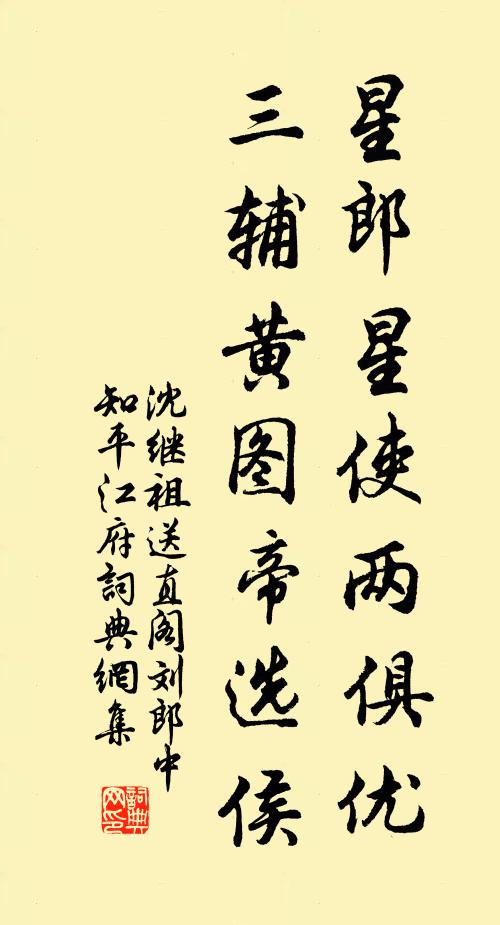 星郎星使两俱优
三辅黄图帝选侯
沈继祖送直阁刘郎中
知平江府詞典網集
詞典网印